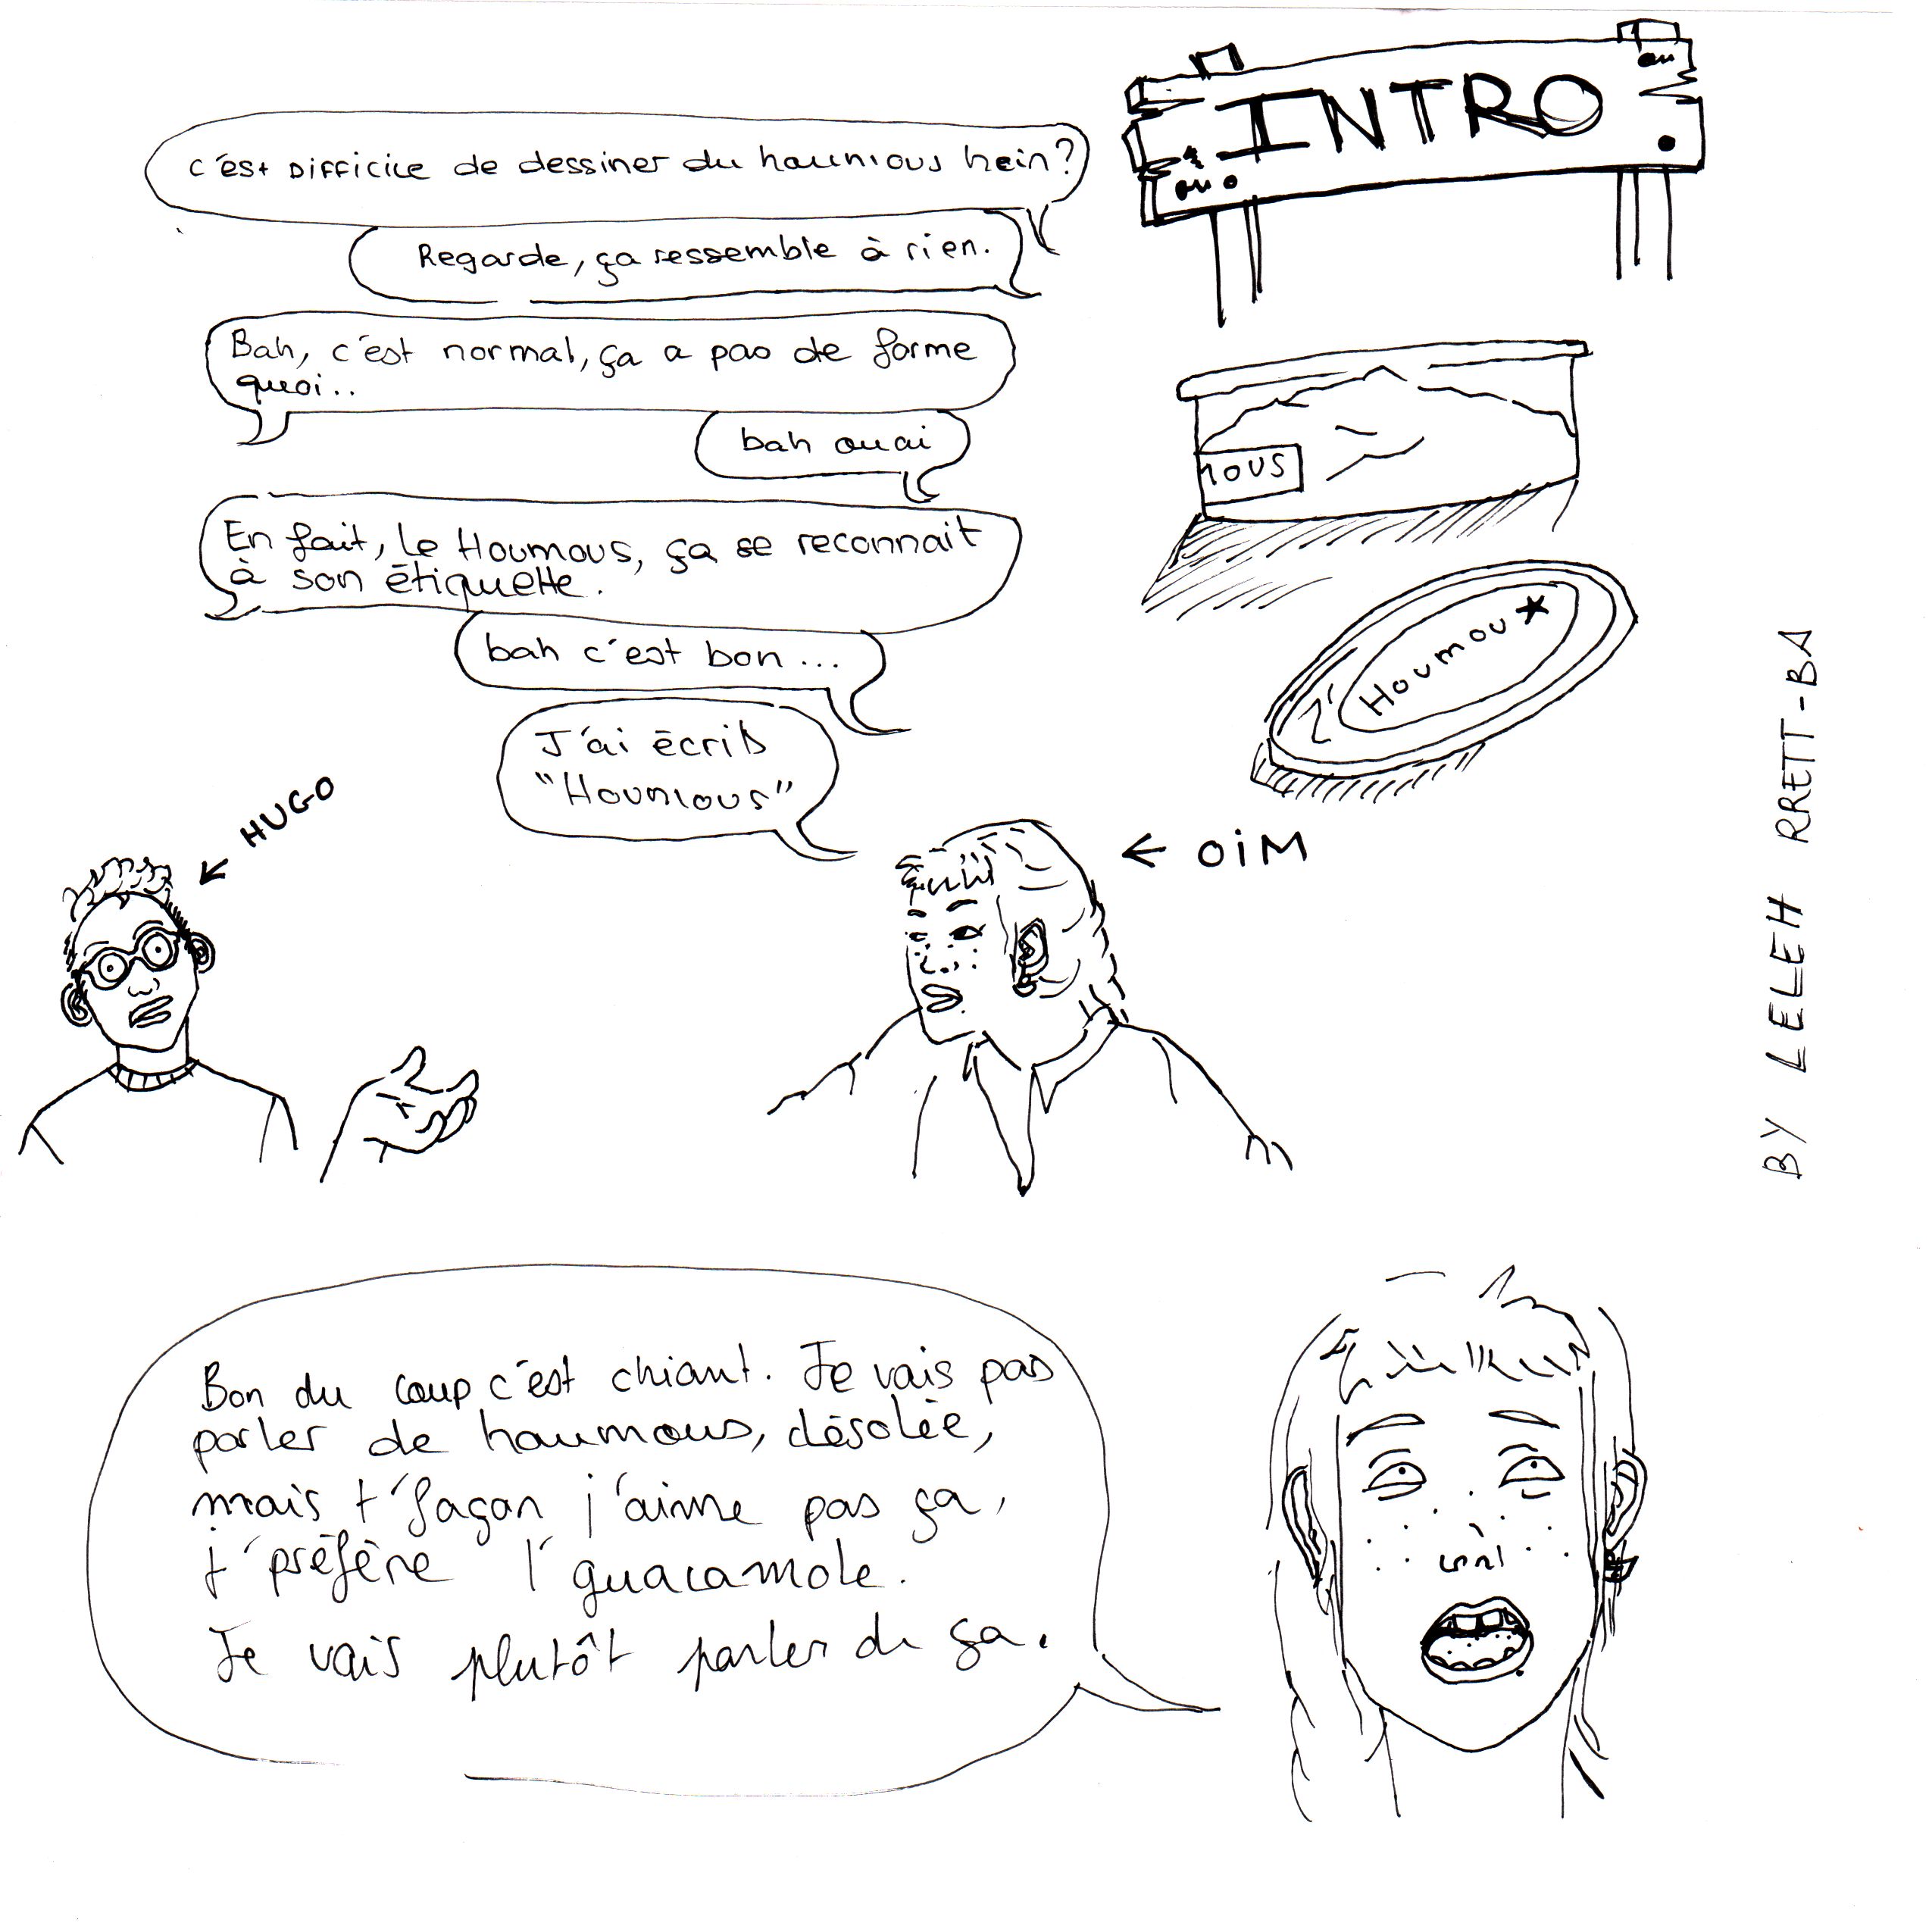 INTRO
c'est DIFFICILE de dessiner du houmous hein?
Regarde, ça ressemble à rien.
Bah, c'est normal, ça a pas de forme
quoi..
bah ouai
En fait, le Houmous, ça se reconnait
à son étiquette.
bah c'est bon...
J'ai écrit
"Houmous"
MOUS
L'
Houmou★
HUGO
← OIM
BY LELEH RRETT-BA
Bon du coup c'est chiant. Je vais pas
parler de houmous, désolée,
mais t'façon j'aime pas ça,
j'préfère l'guacamole.
Je vais plutôt parler de ça.